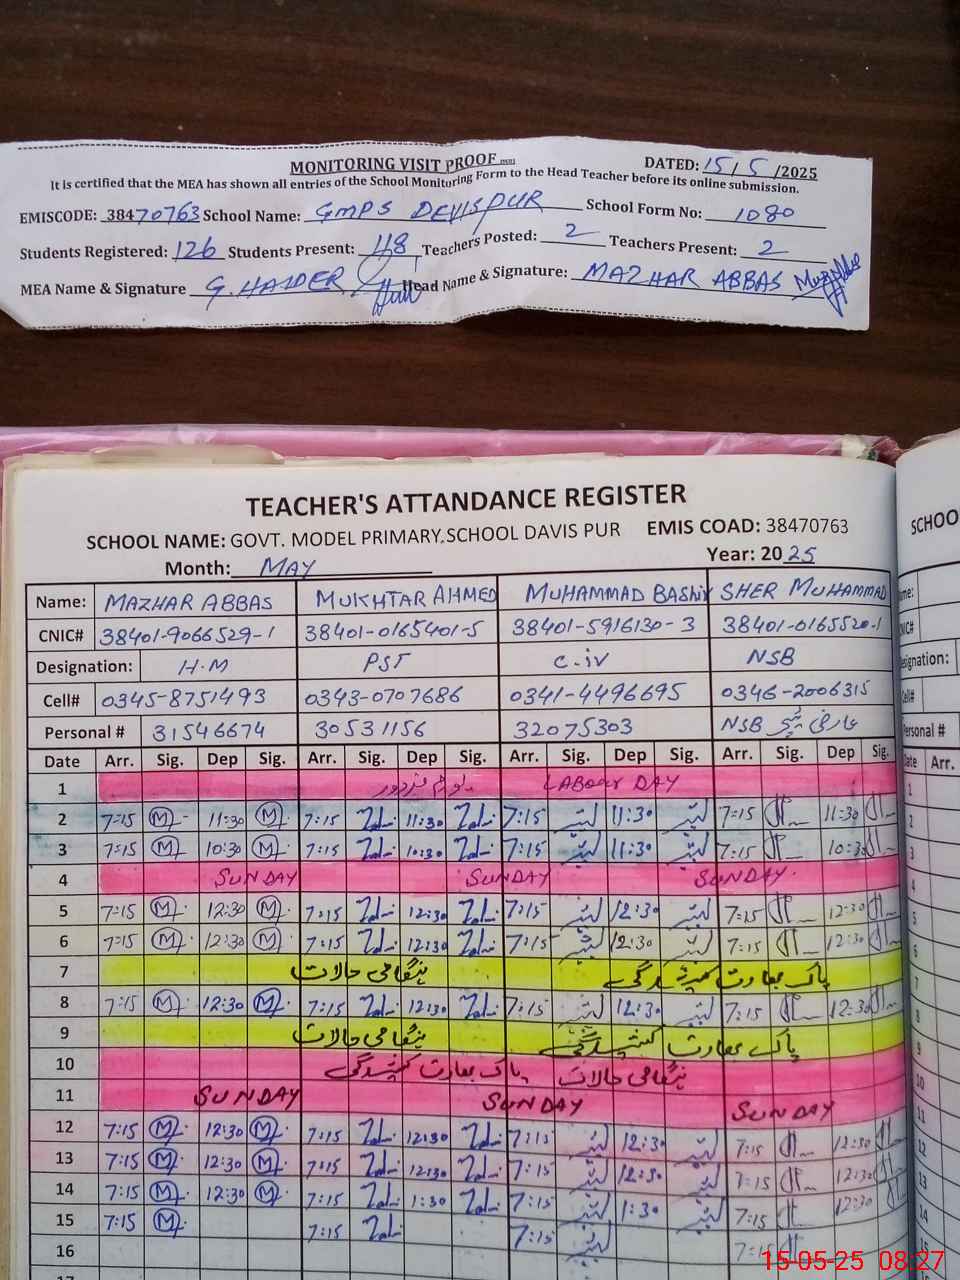 MONITORING VISIT PROOF
DATED: 15/5/2025
It is certified that the MEA has shown all entries of the School Monitoring Form to the Head Teacher before its online submission.
EMISCODE: 38470763 School Name: GMPS DEVISPUR School Form No: 1080
Students Registered: 126 Students Present: 118 Teachers Posted: 2 Teachers Present: 2
MEA Name & Signature G. HAIDER Head Name & Signature: MAZHAR ABBAS
TEACHER'S ATTANDANCE REGISTER
SCHOOL NAME: GOVT. MODEL PRIMARY.SCHOOL DAVIS PUR EMIS COAD: 38470763
Month: MAY Year: 2025
Name: MAZHAR ABBAS MUKHTAR AHMED MUHAMMAD BASHIR SHER MUHAMMAD
CNIC# 38401-9066529-1 38401-0165401-5 38401-5916130-3 38401-0165520-1
Designation: H.M PST C.iv NSB
Cell# 0345-8751493 0343-0707686 0341-4496695 0346-2006315
Personal # 31546674 30531156 32075303 NSB
Date Arr. Sig. Dep Sig. Arr. Sig. Dep Sig. Arr. Sig. Dep Sig. Arr. Sig. Dep Sig.
1 یوم مزدور LABOUR DAY
2 7:15 M 11:30 M 7:15 11:30 7:15 11:30 7:15 11:30
3 7:15 M 10:30 M 7:15 10:30 7:15 11:30 7:15 10:30
4 SUNDAY SUNDAY SUNDAY
5 7:15 M 12:30 M 7:15 12:30 7:15 12:30 7:15 12:30
6 7:15 M 12:30 M 7:15 12:30 7:15 12:30 7:15 12:30
7 ہنگامی حالات پاک بھارت کشیدگی
8 7:15 M 12:30 M 7:15 12:30 7:15 12:30 7:15 12:30
9 ہنگامی حالات پاک بھارت کشیدگی
10 پاک بھارت کشیدگی ہنگامی حالات
11 SUNDAY SUNDAY SUNDAY
12 7:15 M 12:30 M 7:15 12:30 7:15 12:30 7:15 12:30
13 7:15 M 12:30 M 7:15 12:30 7:15 12:30 7:15 12:30
14 7:15 M 12:30 M 7:15 1:30 7:15 1:30 7:15 12:30
15 7:15 M 7:15 7:15 7:15
16
SCHOO
Arr.
15-05-25 08:27